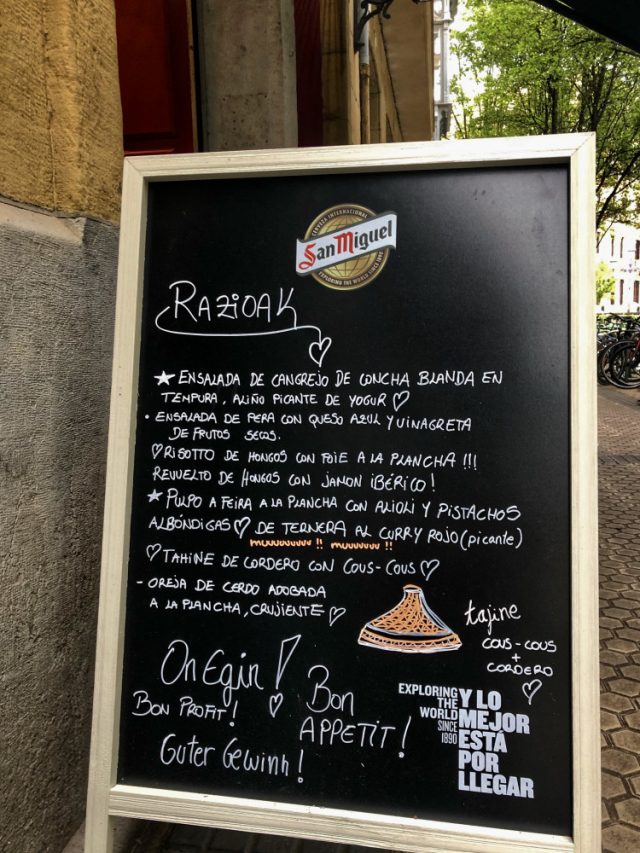 CERVEZA INTERNACIONAL
San Miguel
EXPLORING THE WORLD SINCE 1890
RAZIOAK
★ ENSALADA DE CANGREJO DE CONCHA BLANDA EN
TEMPURA, ALIÑO PICANTE DE YOGUR ♡
· ENSALADA DE PERA CON QUESO AZUL Y VINAGRETA
DE FRUTOS SECOS.
♡ RISOTTO DE HONGOS CON FOIE A LA PLANCHA !!!
REVUELTO DE HONGOS CON JAMON IBÉRICO!
★ PULPO A FEIRA A LA PLANCHA CON ALIOLI Y PISTACHOS
ALBÓNDIGAS ♡ DE TERNERA AL CURRY ROJO (picante)
muuuuuuu !! muuuuuu !!
♡ TAHINE DE CORDERO CON COUS-COUS ♡
- OREJA DE CERDO ADOBADA
A LA PLANCHA, CRUJIENTE ♡
tajine
COUS-COUS
+
CORDERO
♡
On Egin! ♡
BON PROFIT!
BON
APPETIT!
Guter Gewinn!
EXPLORING
THE
WORLD
SINCE
1890
Y LO
MEJOR
ESTÁ
POR
LLEGAR